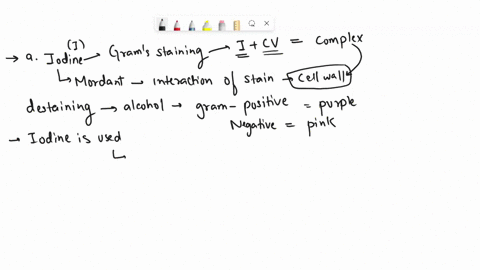 (I)
→ a. Iodine → Gram's staining → I + CV = Complex
↳ Mordant → interaction of stain → Cell wall
destaining → alcohol → gram-positive = purple
Negative = pink
→ Iodine is used
↳